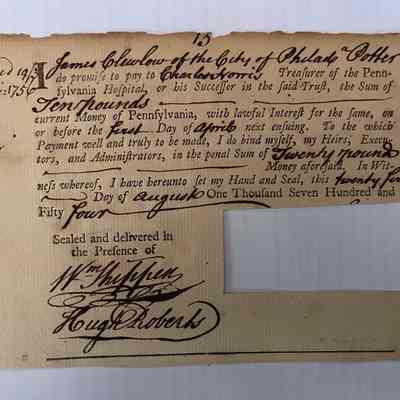 15
I James Clewlow of the City of Philada Potter
do promise to pay to Charles Norris Treasurer of the Penn-
sylvania Hospital, or his Successer in the said Trust, the Sum of
Ten pounds
current Money of Pennsylvania, with lawful Interest for the same, on
or before the first Day of April next ensuing. To the which
Payment well and truly to be made, I do bind myself, my Heirs, Execu-
tors, and Administrators, in the penal Sum of Twenty pound
Money aforesaid. In Wit-
ness whereof, I have hereunto set my Hand and Seal, this twenty
Day of August One Thousand Seven Hundred and
Fifty four
Sealed and delivered in
the Presence of
Wm Shippen
Hugh Roberts